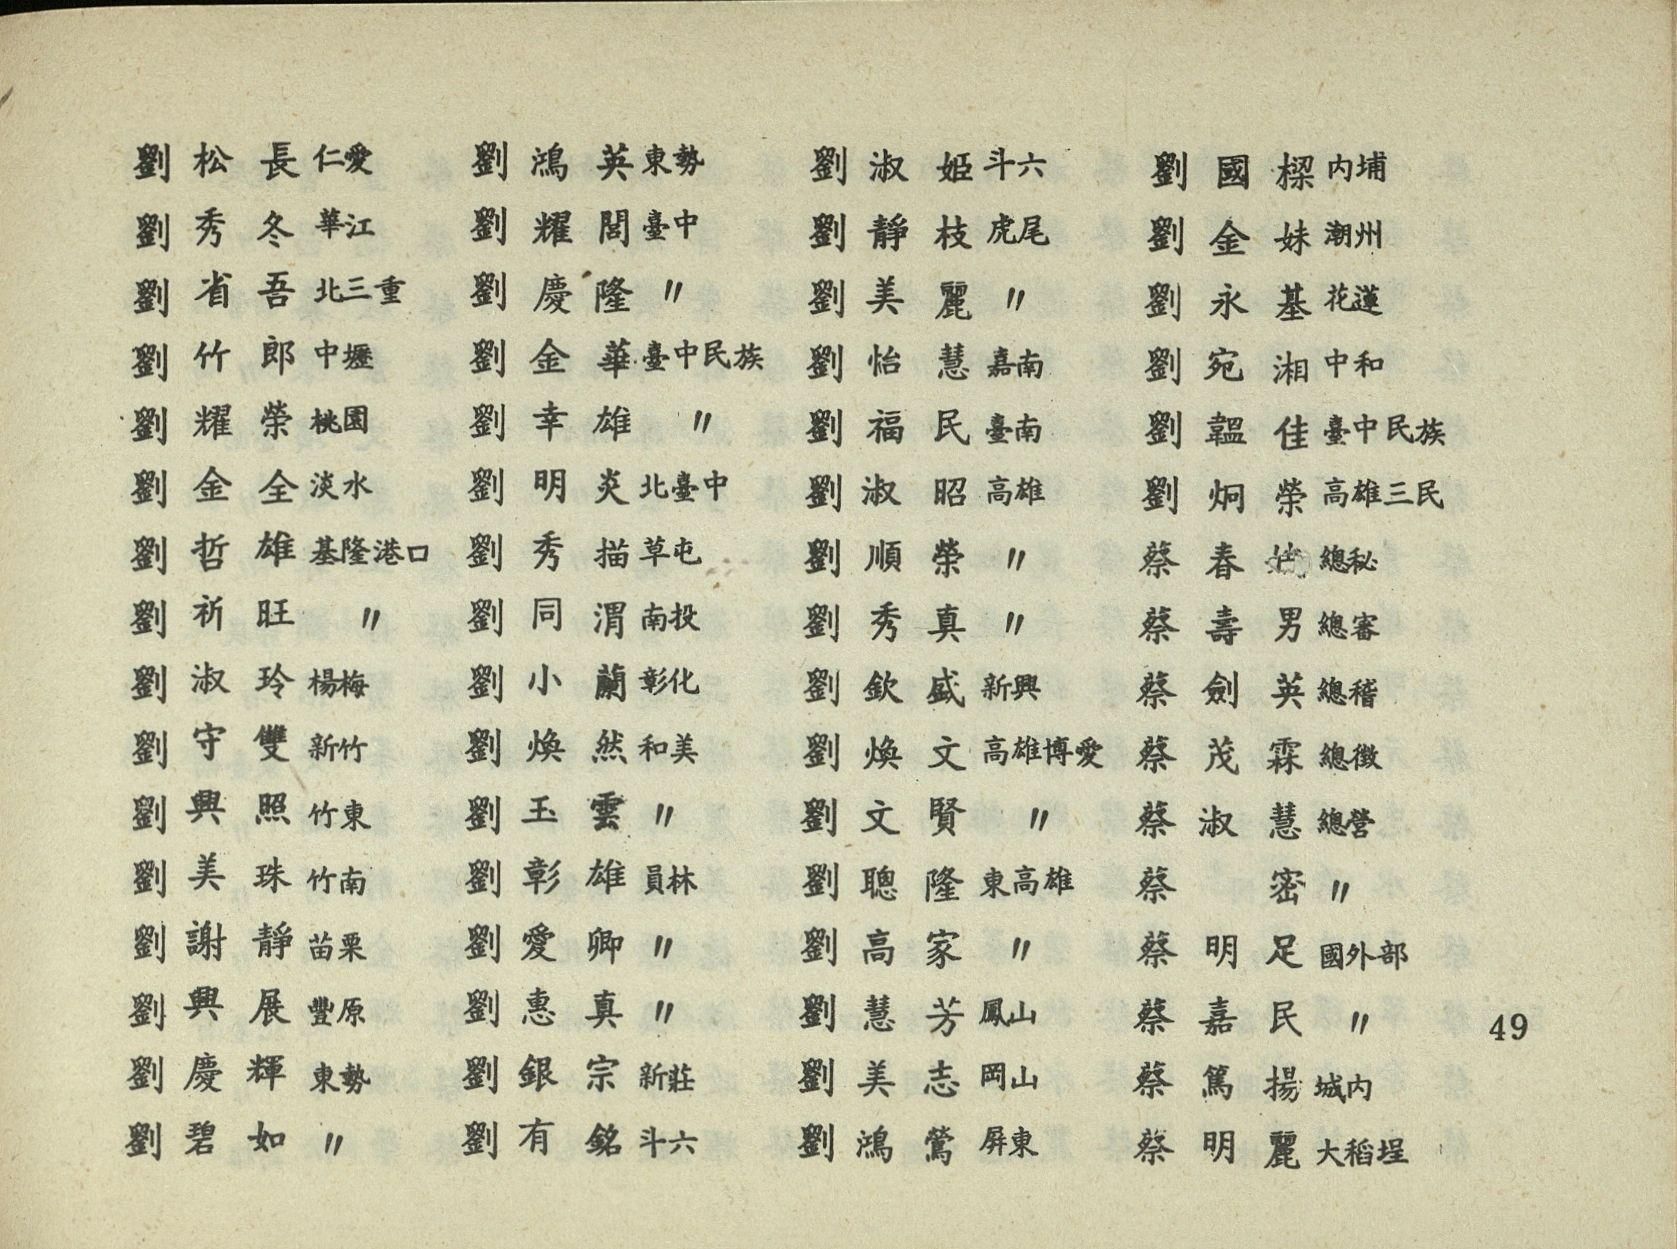 劉松長 仁愛
劉秀冬 華江
劉省吾 北三重
劉竹郎 中壢
劉耀榮 桃園
劉金全 淡水
劉哲雄 基隆港口
劉祈旺 〃
劉淑玲 楊梅
劉守雙 新竹
劉興照 竹東
劉美珠 竹南
劉謝靜 苗栗
劉興展 豐原
劉慶輝 東勢
劉碧如 〃
劉鴻英 東勢
劉耀閭 臺中
劉慶隆 〃
劉金華 臺中民族
劉幸雄 〃
劉明炎 北臺中
劉秀描 草屯
劉同渭 南投
劉小蘭 彰化
劉煥然 和美
劉玉雲 〃
劉彰雄 員林
劉愛卿 〃
劉惠真 〃
劉銀宗 新莊
劉有銘 斗六
劉淑姬 斗六
劉靜枝 虎尾
劉美麗 〃
劉怡慧 嘉南
劉福民 臺南
劉淑昭 高雄
劉順榮 〃
劉秀真 〃
劉欽盛 新興
劉煥文 高雄博愛
劉文賢 〃
劉聰隆 東高雄
劉高家 〃
劉慧芳 鳳山
劉美志 岡山
劉鴻鶯 屏東
劉國樑 內埔
劉金妹 潮州
劉永基 花蓮
劉宛湘 中和
劉韞佳 臺中民族
劉炯榮 高雄三民
蔡春 總秘
蔡壽男 總審
蔡劍英 總稽
蔡茂霖 總徵
蔡淑慧 總營
蔡密 〃
蔡明足 國外部
蔡嘉民 〃
蔡篤揚 城內
蔡明麗 大稻埕
49